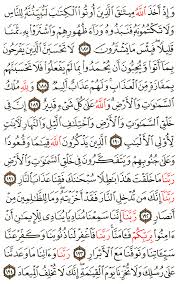 وَإِذْ أَخَذَ ٱللَّهُ مِيثَٰقَ ٱلَّذِينَ أُوتُوا۟ ٱلْكِتَٰبَ لَتُبَيِّنُنَّهُۥ لِلنَّاسِ
وَلَا تَكْتُمُونَهُۥ فَنَبَذُوهُ وَرَآءَ ظُهُورِهِمْ وَٱشْتَرَوْا۟ بِهِۦ ثَمَنًا
قَلِيلًا ۖ فَبِئْسَ مَا يَشْتَرُونَ ١٨٧ لَا تَحْسَبَنَّ ٱلَّذِينَ يَفْرَحُونَ
بِمَآ أَتَوا۟ وَّيُحِبُّونَ أَن يُحْمَدُوا۟ بِمَا لَمْ يَفْعَلُوا۟ فَلَا تَحْسَبَنَّهُم
بِمَفَازَةٍ مِّنَ ٱلْعَذَابِ ۖ وَلَهُمْ عَذَابٌ أَلِيمٌ ١٨٨ وَلِلَّهِ مُلْكُ
ٱلسَّمَٰوَٰتِ وَٱلْأَرْضِ ۗ وَٱللَّهُ عَلَىٰ كُلِّ شَىْءٍ قَدِيرٌ ١٨٩ إِنَّ فِى خَلْقِ
ٱلسَّمَٰوَٰتِ وَٱلْأَرْضِ وَٱخْتِلَٰفِ ٱلَّيْلِ وَٱلنَّهَارِ لَءَايَٰتٍ
لِّأُو۟لِى ٱلْأَلْبَٰبِ ١٩٠ ٱلَّذِينَ يَذْكُرُونَ ٱللَّهَ قِيَٰمًا وَقُعُودًا
وَعَلَىٰ جُنُوبِهِمْ وَيَتَفَكَّرُونَ فِى خَلْقِ ٱلسَّمَٰوَٰتِ وَٱلْأَرْضِ
رَبَّنَا مَا خَلَقْتَ هَٰذَا بَٰطِلًا سُبْحَٰنَكَ فَقِنَا عَذَابَ ٱلنَّارِ ١٩١
رَبَّنَآ إِنَّكَ مَن تُدْخِلِ ٱلنَّارَ فَقَدْ أَخْزَيْتَهُۥ ۖ وَمَا لِلظَّٰلِمِينَ مِنْ
أَنصَارٍ ١٩٢ رَّبَّنَآ إِنَّنَا سَمِعْنَا مُنَادِيًا يُنَادِى لِلْإِيمَٰنِ أَنْ
ءَامِنُوا۟ بِرَبِّكُمْ فَـَٔامَنَّا ۚ رَبَّنَا فَٱغْفِرْ لَنَا ذُنُوبَنَا وَكَفِّرْ عَنَّا
سَيِّـَٔاتِنَا وَتَوَفَّنَا مَعَ ٱلْأَبْرَارِ ١٩٣ رَبَّنَا وَءَاتِنَا مَا وَعَدتَّنَا
عَلَىٰ رُسُلِكَ وَلَا تُخْزِنَا يَوْمَ ٱلْقِيَٰمَةِ ۗ إِنَّكَ لَا تُخْلِفُ ٱلْمِيعَادَ ١٩٤